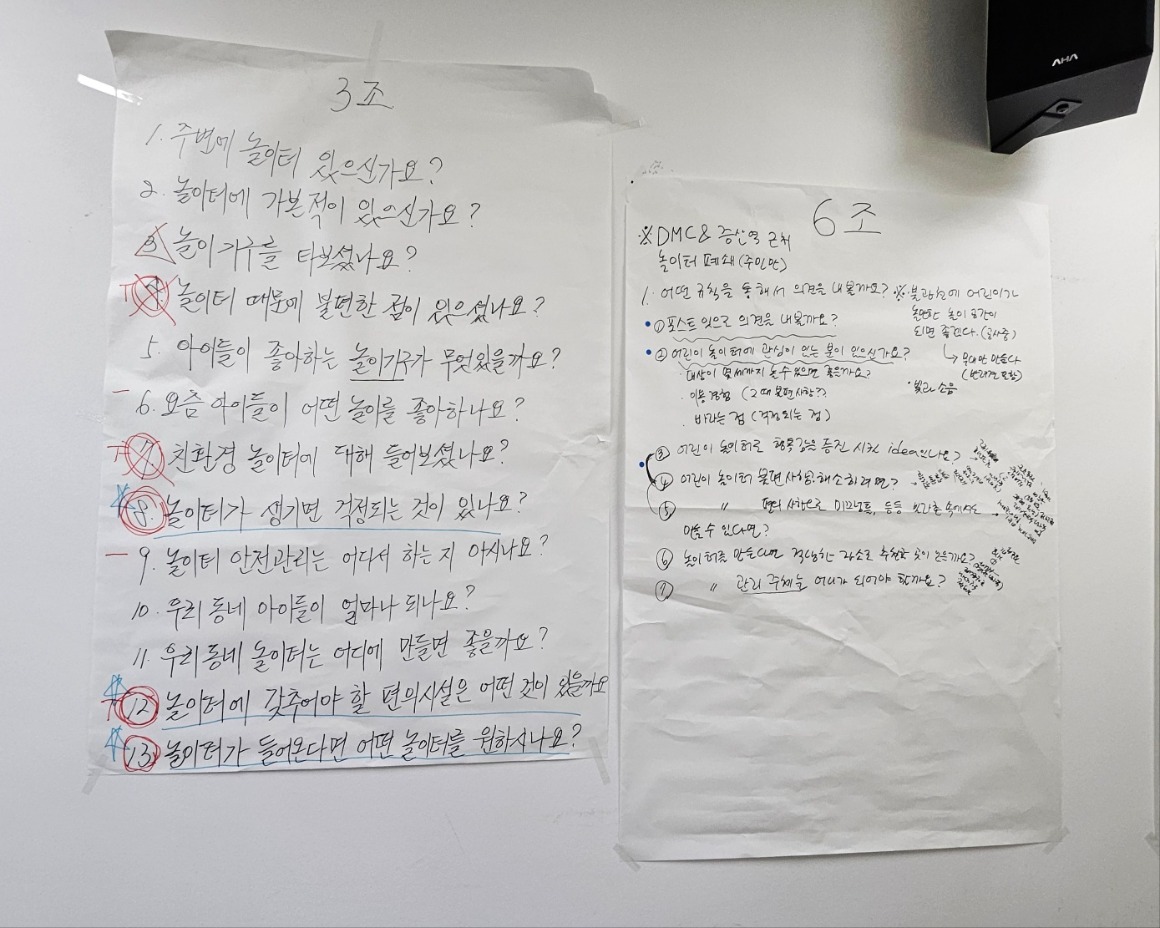 AHA
3조
1. 주변에 놀이터 있으신가요?
2. 놀이터에 가본적이 있으신가요?
3. 놀이기구를 타보셨나요?
4. 놀이터 때문에 불편한 점이 있으셨나요?
5. 아이들이 좋아하는 놀이기구가 무엇있을까요?
6. 요즘 아이들이 어떤 놀이를 좋아하나요?
7. 친환경 놀이터에 대해 들어보셨나요?
8. 놀이터가 생기면 걱정되는 것이 있나요?
9. 놀이터 안전관리는 어디서 하는 지 아시나요?
10. 우리 동네 아이들이 얼마나 되나요?
11. 우리 동네 놀이터는 어디에 만들면 좋을까요?
12. 놀이터에 갖추어야 할 편의시설은 어떤 것이 있을까요
13. 놀이터가 들어온다면 어떤 놀이터를 원하시나요?
6조
※ DMC & 증산역 근처
놀이터 폐쇄 (주민만)
1. 어떤 규칙을 통해서 의견을 내볼까요?
① 포스트 잇으로 의견을 내볼까요?
② 어린이 놀이터에 관심이 있는 분이 있으신가요?
· 대상이 몇세까지 놀 수 있으면 좋을까요?
· 이용경험 (그때 불편사항?)
· 바라는 점 (걱정되는 점)
③ 어린이 놀이터로 행복 증진 시킬 idea 있나요?
④ 어린이 놀이터 불편사항 해소하려면?
⑤ 〃 편의 사항으로 등등
만들 수 있다면?
⑥ 놀이터를 만든다면 적당한 장소로 추천할 곳이 있을까요?
⑦ 〃 관리 주체는 어디가 되어야 할까요?
※ 불광천에 어린이가
놀만한 놀이 공간이
되면 좋겠다. (공사중)
· 빛과 소음